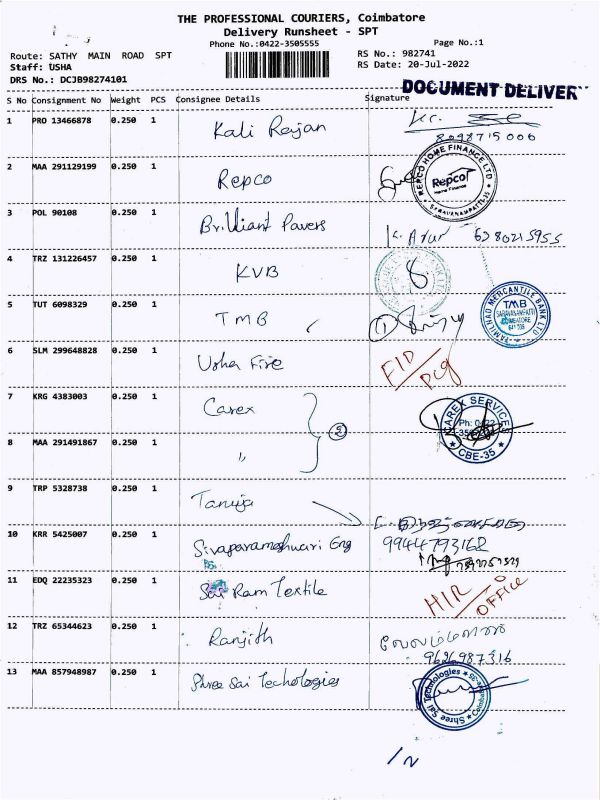 THE PROFESSIONAL COURIERS, Coimbatore
Delivery Runsheet - SPT
Phone No.:0422-3505555
Page No.:1
Route: SATHY MAIN ROAD SPT
RS No.: 982741
Staff: USHA
RS Date: 20-Jul-2022
DRS No.: DCJB98274101
DOCUMENT DELIVER
S No Consignment No Weight PCS Consignee Details Signature
1 PRO 13466878 0.250 1 Kali Rajan
8098715006
2 MAA 291129199 0.250 1 Repco
REPCO HOME FINANCE LTD
Repco
Home Finance
SARAVANAMPATTI-35
3 POL 90108 0.250 1 Brilliant Pavers
6380215955
4 TRZ 131226457 0.250 1 KVB
8
5 TUT 6098329 0.250 1 TMB
1
TAMILNAD MERCANTILE BANK LTD
TMB
SARAVANAMPATTI
COIMBATORE
6 SLM 299648828 0.250 1 Usha Fire
FID
pcg
7 KRG 4383003 0.250 1 Carex
2
CAREX SERVICE
Ph: 0422
CBE-35
8 MAA 291491867 0.250 1 "
9 TRP 5328738 0.250 1 Tanuja
10 KRR 5425007 0.250 1 Sivaparameshwari Eng
9944793162
11 EDQ 22235323 0.250 1 Sai Ram Textile
HIR
OFFICE
12 TRZ 65344623 0.250 1 Ranjith
9626987316
13 MAA 857948987 0.250 1 Shree Sai Techologies
Shree Sai Technologies